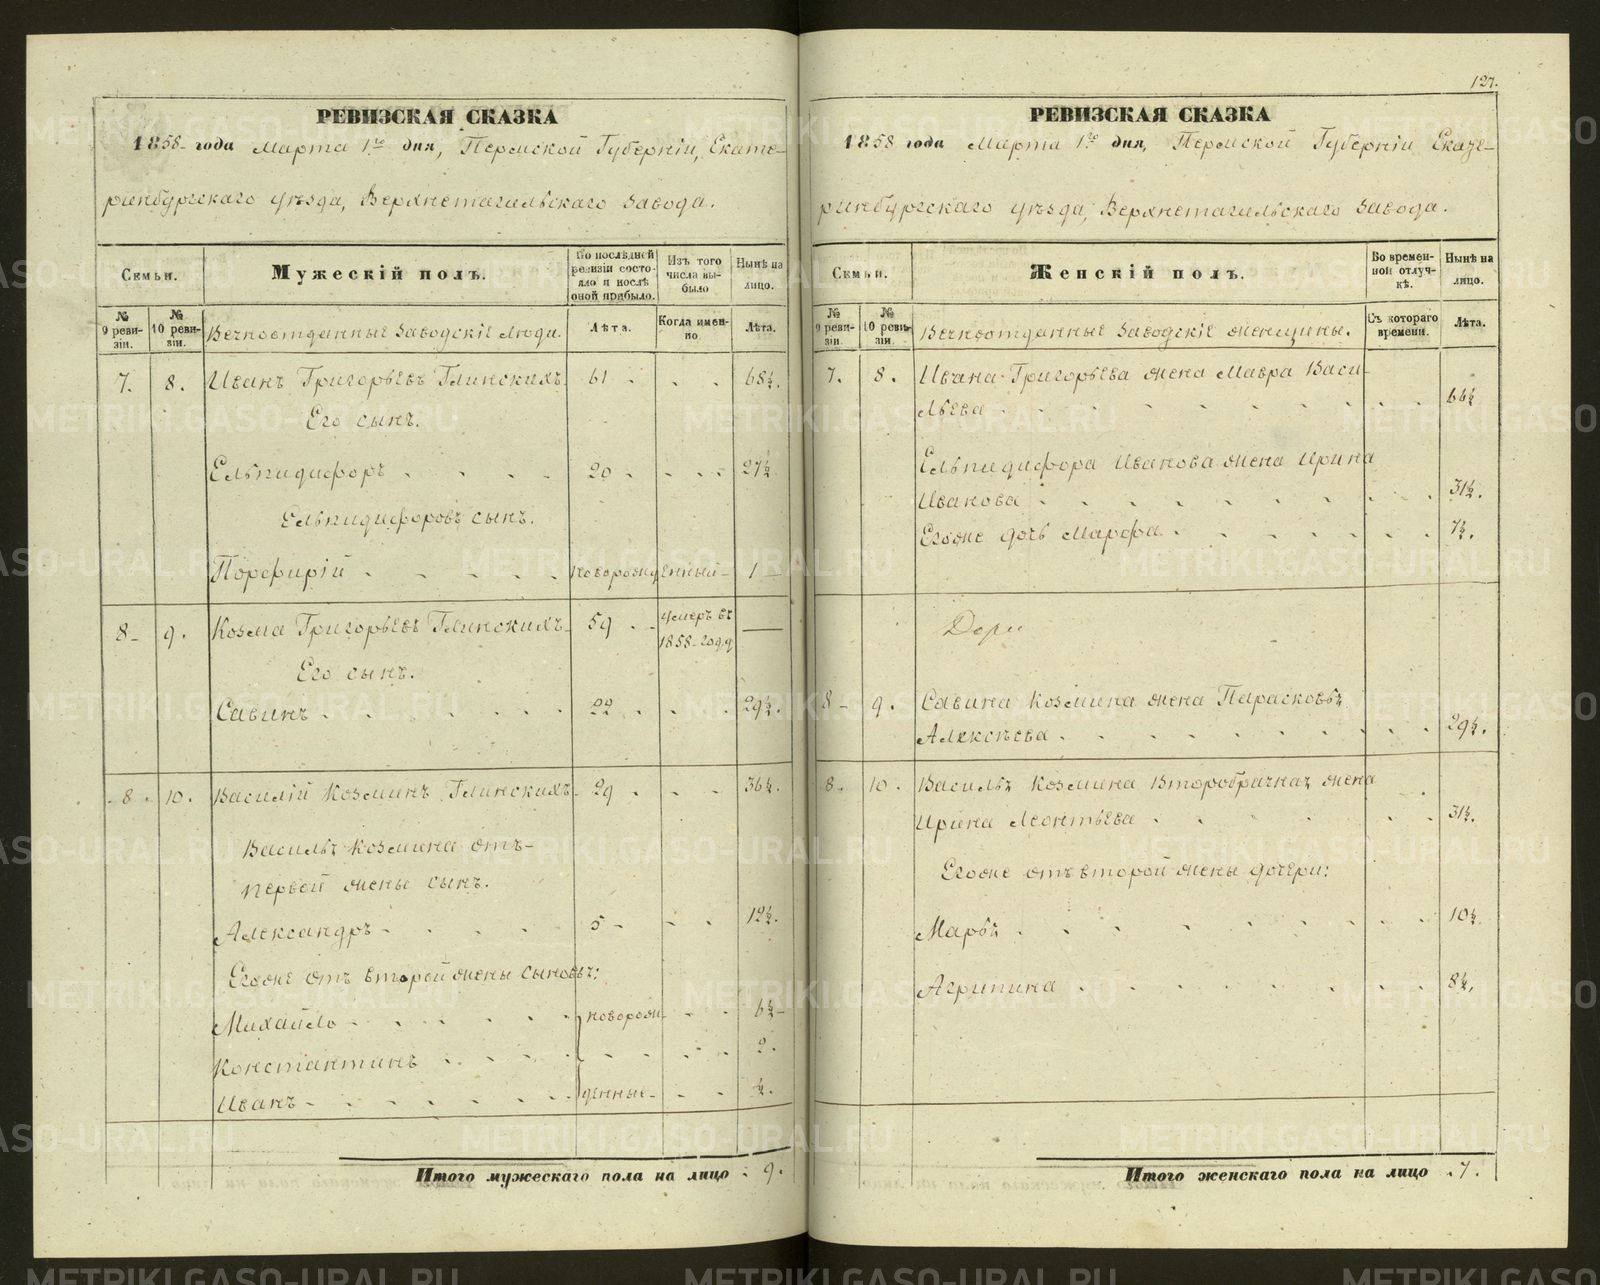 127.
РЕВИЗСКАЯ СКАЗКА
1858 года Марта 1го дня, Пермской Губерніи, Екате-
ринбургскаго уѣзда, Верхнетагильскаго завода.
Семьи.
Мужескій полъ.
По послѣдней ревизіи состояло и послѣ оной прибыло.
Изъ того числа выбыло
Нынѣ на лицо.
№ 9 ревизіи.
№ 10 ревизіи.
Вечноотданные заводскіе люди.
Лѣта.
Когда именно
Лѣта.
7. 8. Иванъ Григорьевъ Глинскихъ 61 68½.
Его сынъ.
Ельпидифоръ 20 27½
Ельпидифоровъ сынъ.
Порфирій новорожденный 1
8 9. Козма Григорьевъ Глинскихъ 59 умеръ въ
1858 году
Его сынъ.
Савинъ 22 29½.
8. 10. Василій Козминъ Глинскихъ 29 36½.
Василья Козмина отъ
первой жены сынъ.
Александръ 5 12½.
Егоже отъ второй жены сыновья:
Михайло новорож- 6½
Константинъ 2.
Иванъ денные ½.
Итого мужескаго пола на лицо 9.
РЕВИЗСКАЯ СКАЗКА
1858 года Марта 1го дня, Пермской Губерніи Екате-
ринбургскаго уѣзда, Верхнетагильскаго завода.
Семьи.
Женскій полъ.
Во временной отлучкѣ.
Нынѣ на лицо.
№ 9 ревизіи.
№ 10 ревизіи.
Вечноотданные заводскіе женщины.
Съ котораго времени.
Лѣта.
7. 8. Ивана Григорьева жена Мавра Васи-
льева 66½
Ельпидифора Иванова жена Ирина
Иванова 31½.
Егоже дочь Марфа 7½.
8 9. Савина Козмина жена Парасковья
Алексѣева 29½.
8. 10. Василья Козмина Второбрачная жена
Ирина Леонтьева 31½.
Егоже отъ второй жены дочери:
Марья 10½
Агрипина 8½.
Итого женскаго пола на лицо 7.
METRIKI.GASO-URAL.RU